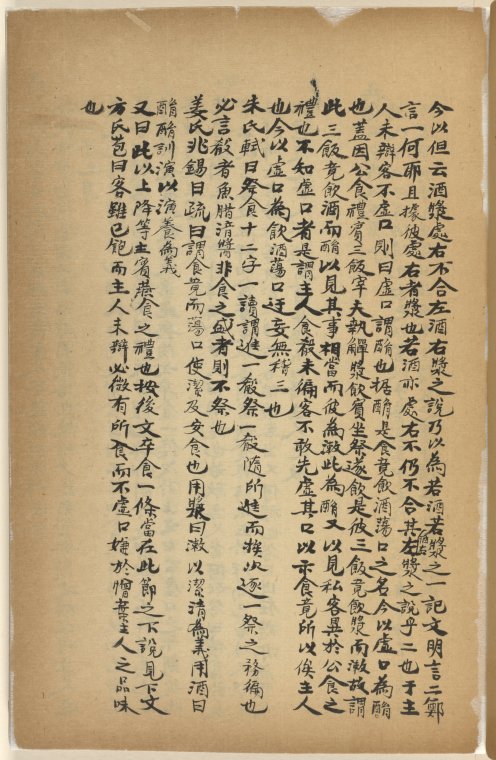 今以但云酒漿處右不合左酒右漿之說乃以為若酒若漿之一記文明言二鄭
言一何耶且據彼處右者漿也若酒亦處右不仍不合其左漿之說乎二也于主
人未辯客不虛口則曰虛口謂酳也据酳是食竟飲酒蕩口之名今以虛口為酳
也蓋因公食禮賓三飯宰夫執觶漿飲賓坐祭遂飲是彼三飯竟飲漿而漱故謂
此三飯竟飲酒而酳以見其事相當而彼為漱此為酳又以見私客異於公食之
禮也不知虛口者是謂主人食殽未徧客不敢先虛其口以示食竟所以俟主人
也今以虛口為飲酒蕩口迂妄無稽三也
朱氏軾曰祭食十二字一讀謂進一殽祭一殽隨所進而挨次逐一祭之務徧也
必言殽者魚腊湆醬非食之盛者則不祭也
姜氏兆錫曰疏曰謂食竟而蕩口使潔及安食也用漿曰漱以潔清為義用酒曰
酳酳訓演以演養為義
又曰此以上降等主賓燕食之禮也按後文卒食一條當在此節之下說見下文
方氏苞曰客雖已飽而主人未辯必微有所食而不虛口嫌於憎棄主人之品味
也